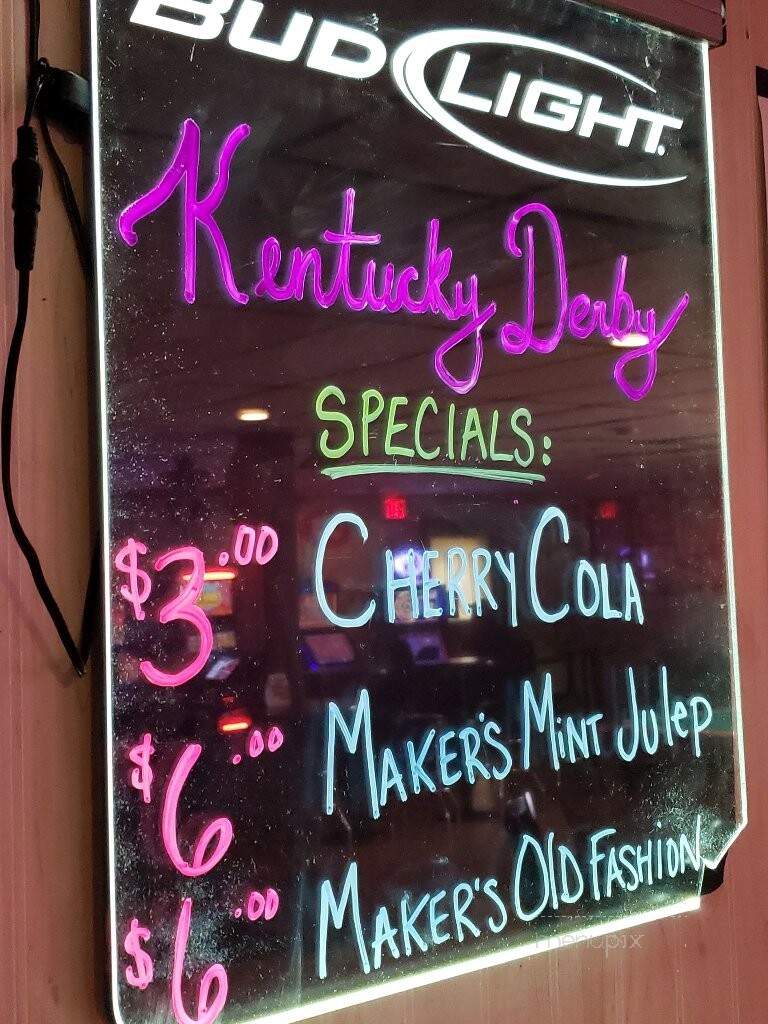 BUD LIGHT
Kentucky Derby
SPECIALS:
$3.00 CHERRY COLA
$6.00 MAKER'S MINT Julep
$6.00 MAKER'S OlD FASHION
menupix